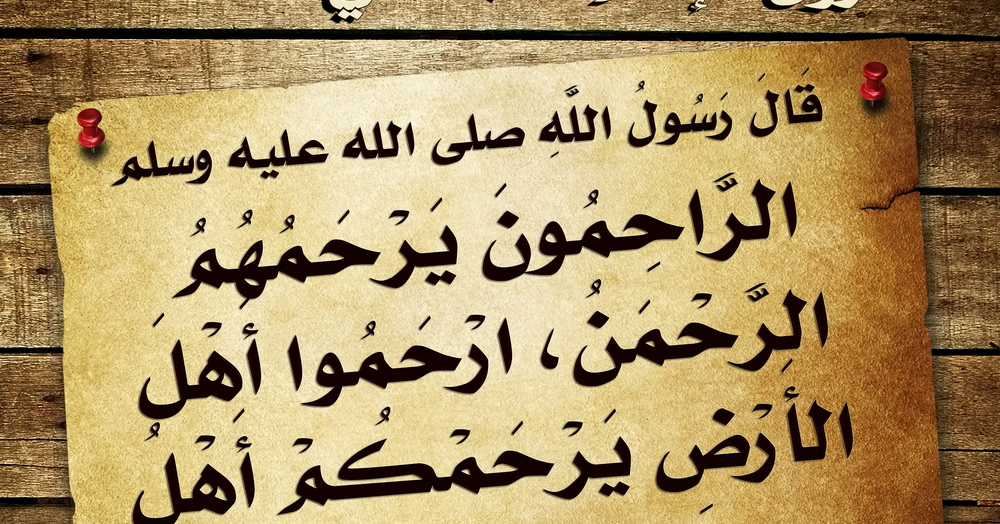 قَالَ رَسُولُ اللَّهِ صلى الله عليه وسلم
الرَّاحِمُونَ يَرْحَمُهُمُ
الِرَّحْمَنُ، ارْحَمُوا أهْلَ
الأرْضِ يَرْحَمْكُمْ أَهْلُ